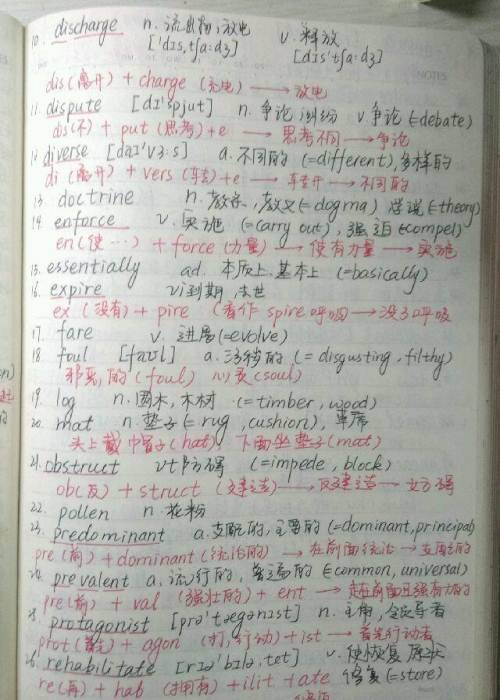 10. discharge n. 流出物,放电 v. 释放
['dɪs,tʃaːdʒ] [dɪs'tʃaːdʒ]
dis(离开) + charge (充电) → 放电
11. dispute [dɪ'spjut] n. 争论,纠纷 v. 争论 (=debate)
dis(不) + put (思考) + e → 思考不同 → 争论
12. diverse [daɪ'vɜːs] a. 不同的 (=different), 多样的
di (离开) + vers (转) + e → 转开 → 不同的
13. doctrine n. 教条,教义 (=dogma) 学说 (=theory)
14. enforce v. 实施 (=carry out), 强迫 (=compel)
en(使…) + force (力量) → 使有力量 → 实施
15. essentially ad. 本质上,基本上 (=basically)
16. expire vi 到期,去世
ex (没有) + pire (看作 spire 呼吸) → 没了呼吸
17. fare v. 进展 (=evolve)
18. foul [faʊl] a. 污秽的 (= disgusting, filthy)
邪恶的 (foul) 心灵 (soul)
19. log n. 圆木,木材 (=timber, wood)
20. mat n. 垫子 (= rug, cushion), 草席
头上戴帽子 (hat) 下面坐垫子 (mat)
21. obstruct vt 阻碍 (=impede, block)
ob(反) + struct (建造) → 反建造 → 妨碍
22. pollen n. 花粉
23. predominant a. 支配的,主要的 (=dominant, principal)
pre (前) + dominant (统治的) → 在前面统治 → 支配的
24. prevalent a. 流行的, 普遍的 (=common, universal)
pre(前) + val (强壮的) + ent →
25. protagonist [prə'tægənɪst] n. 主角, 倡导者
prot (首先) + agon (打,行动) + ist → 首先行动者
26. rehabilitate [rɪə'bɪlə,tet] v. 使恢复原状
re(再) + hab (拥有) + ilit + ate 修复 (=store)
NOTES